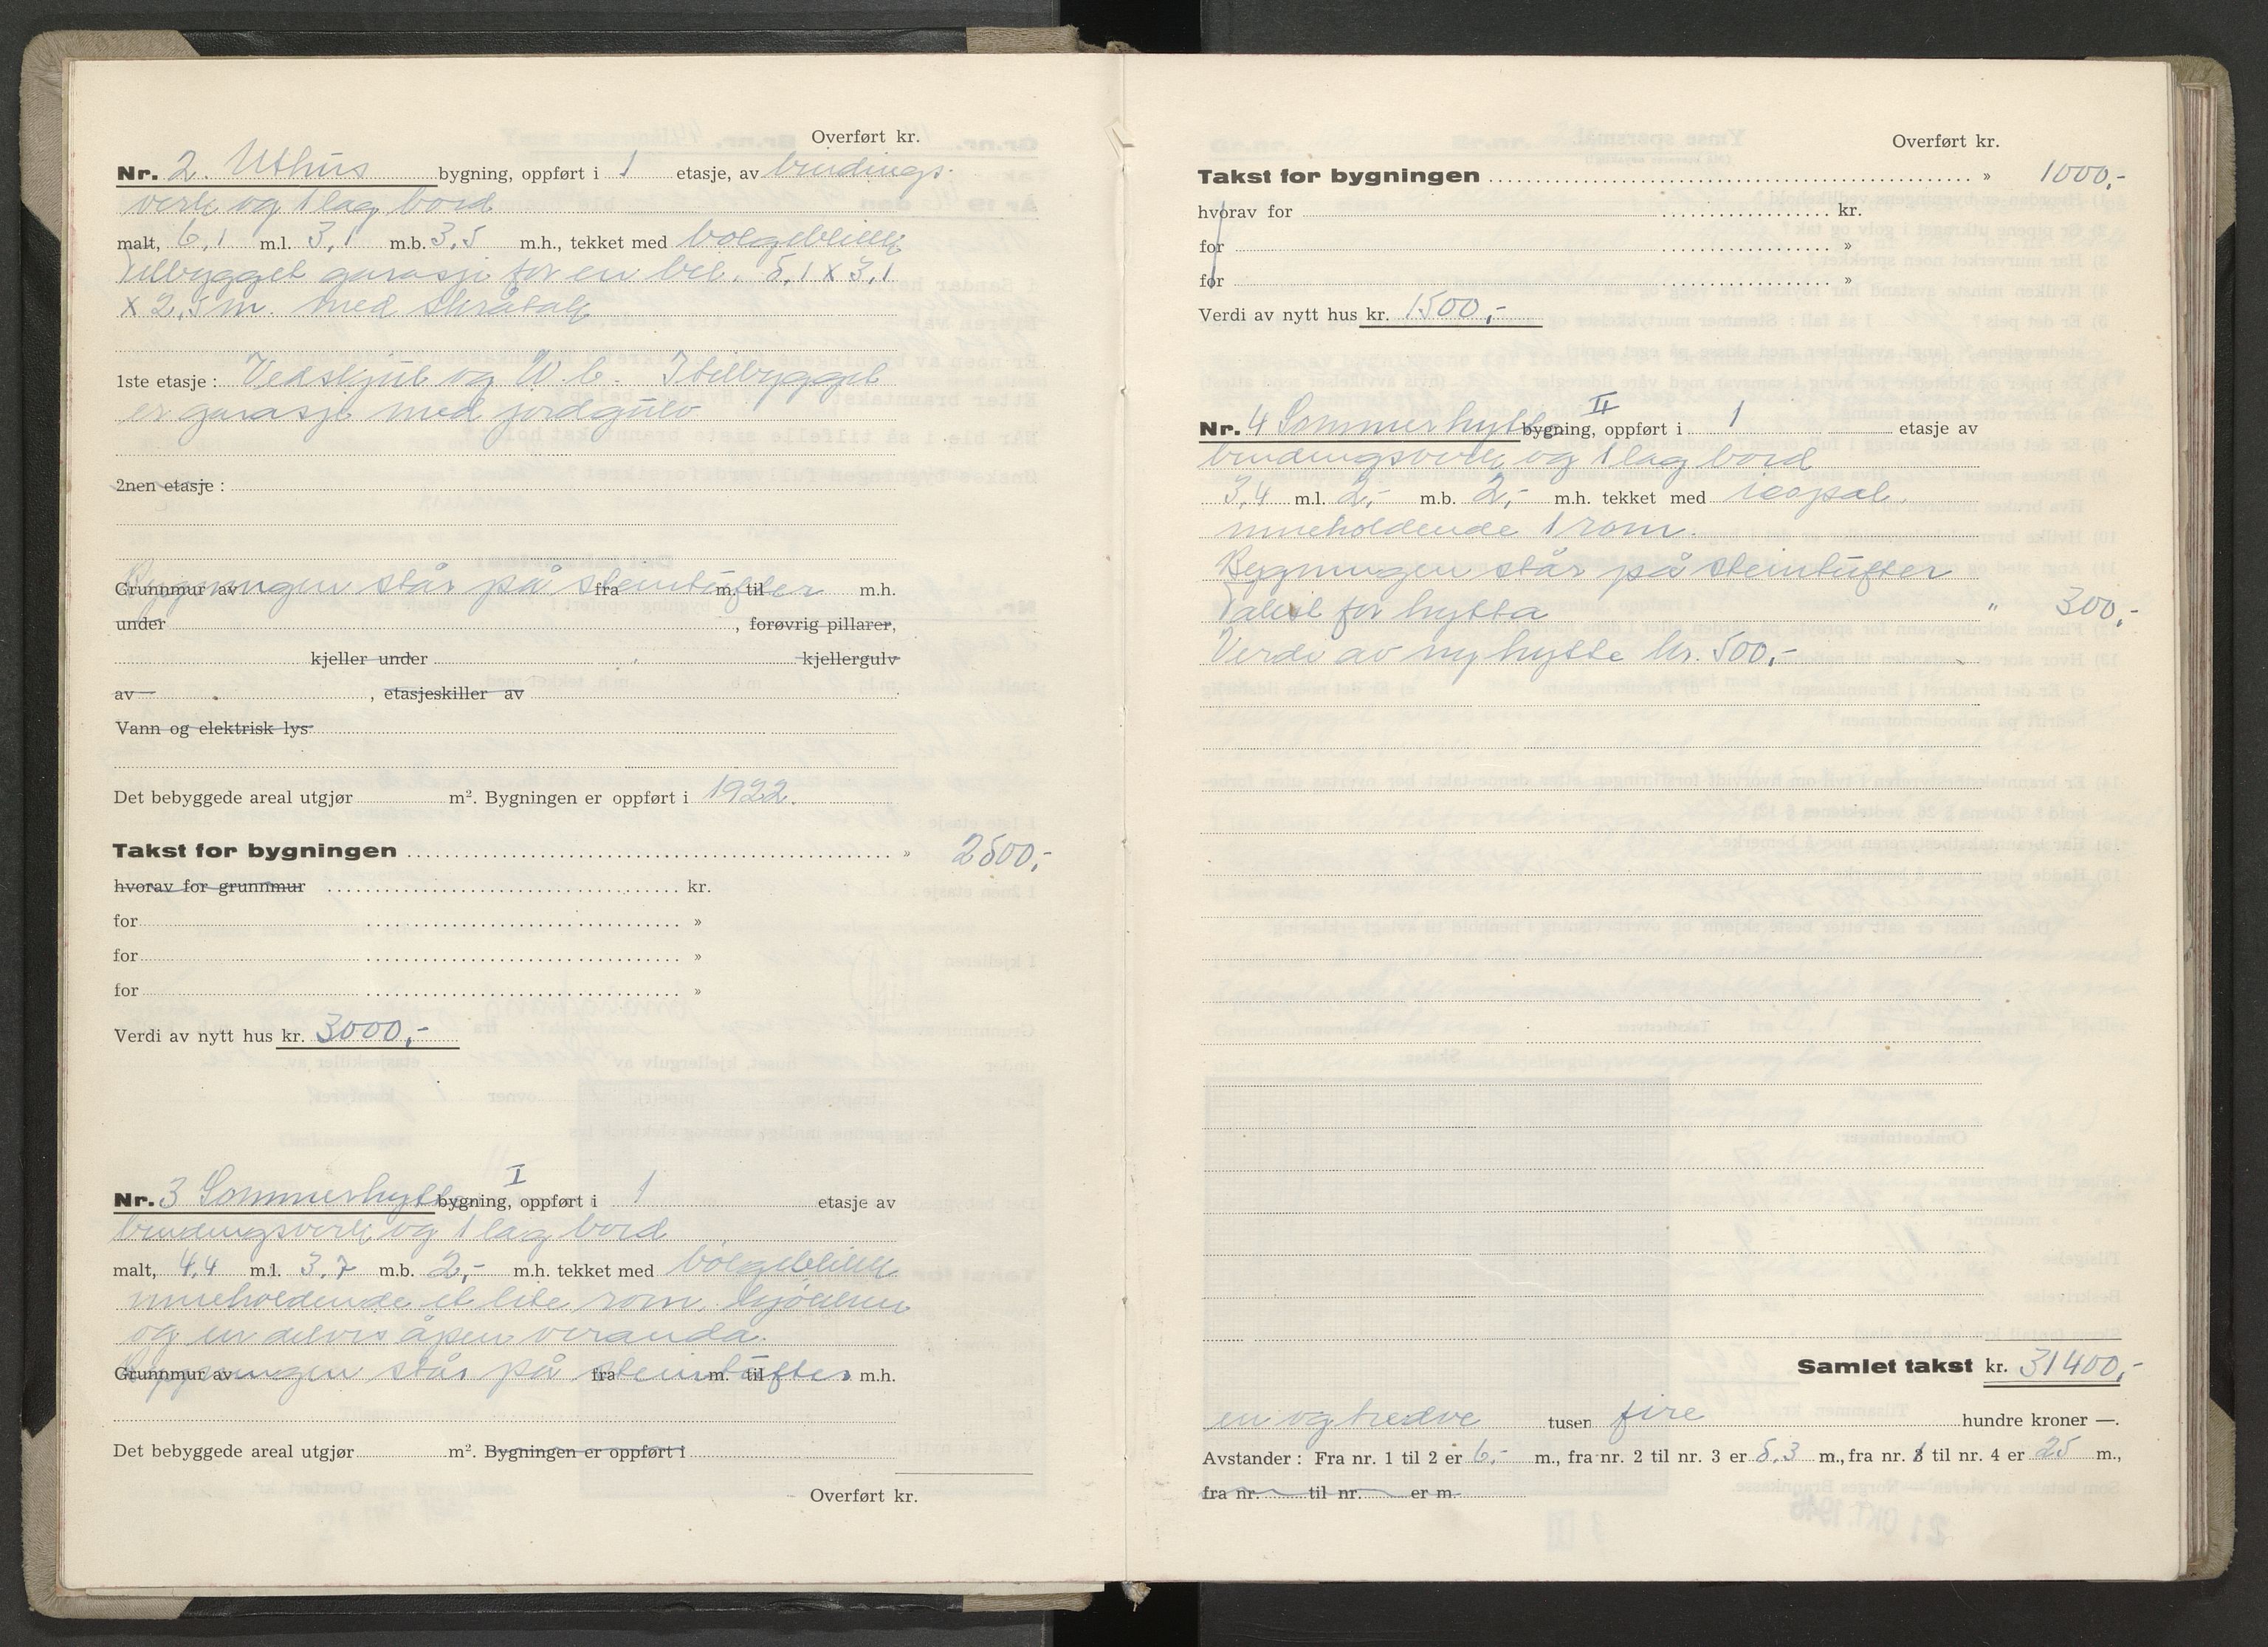 Overført kr.
Nr. 2. Uthus bygning, oppført i 1 etasje, av bindings-
verk og 1 lag bord
malt, 6,1 m.l. 3,1 m.b. 3,5 m.h., tekket med bølgeblikk
Tilbygget garasje for en bil. 5,1 x 3,1
x 2,5 m. med skråtak
1ste etasje: Vedskjul og W.C. I tilbygget
er garasje med jordgulv
2nen etasje:
Bygningen står på steintufter
Grunnmur av fra m. til m.h.
under , forøvrig pillarer,
kjeller under kjellergulv
av , etasjeskiller av
Vann og elektrisk lys
Det bebyggede areal utgjør m². Bygningen er oppført i 1922.
Takst for bygningen » 2500,-
hvorav for grunnmur kr.
for »
for »
for »
Verdi av nytt hus kr. 3000,-
Nr. 3 Sommerhytte I bygning, oppført i 1 etasje av
bindingsverk og 1 lag bord
malt, 4,4 m.l. 3,7 m.b. 2,- m.h. tekket med bølgeblikk
inneholdende et lite rom, kjøkken
og en delvis åpen veranda.
Bygningen står på steintufter
Grunnmur av fra m. til m.h.
Det bebyggede areal utgjør m². Bygningen er oppført i
Overført kr.
Overført kr.
Takst for bygningen » 1000,-
hvorav for kr.
for »
for »
Verdi av nytt hus kr. 1500,-
Nr. 4 Sommerhytte II bygning, oppført i 1 etasje av
bindingsverk og 1 lag bord
3,4 m.l. 2,- m.b. 2,- m.h. tekket med icopal.
inneholdende 1 rom.
Bygningen står på steintufter
Takst for hytta " 300,-
Verdi av ny hytte kr. 500,-
Samlet takst kr. 31400,-
en og tredve tusen fire hundre kroner —.
Avstander: Fra nr. 1 til 2 er 6,- m., fra nr. 2 til nr. 3 er 5,3 m., fra nr. 1 til nr. 4 er 25 m.,
fra nr. til nr. er m.